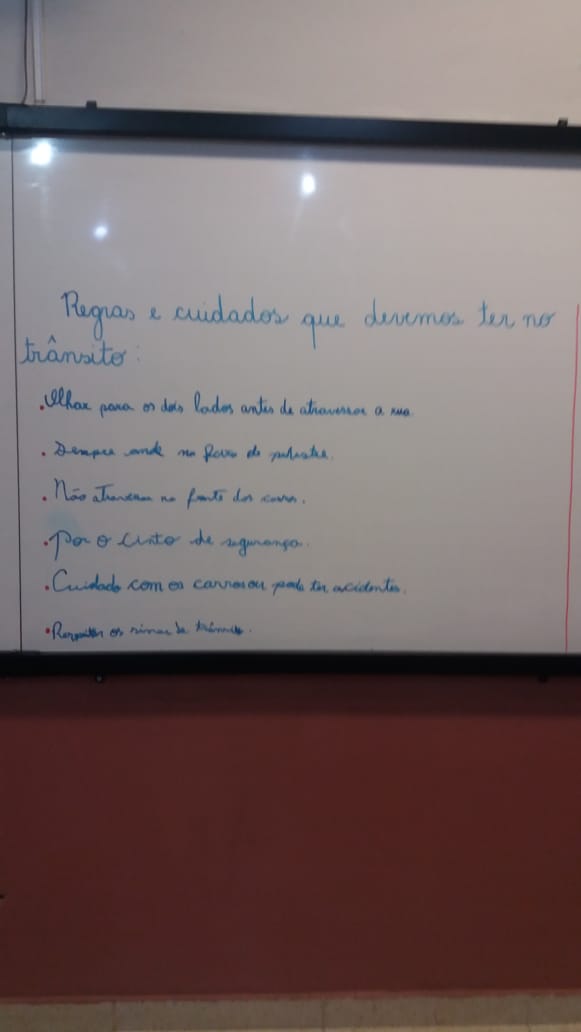 Regras e cuidados que devemos ter no
trânsito:
.Olhar para os dois lados antes de atravessar a rua.
. Sempre ande na faixa de pedestre.
. Não atravessar na frente dos carros.
.Por o cinto de segurança.
.Cuidado com os carros ou pode ter acidentes.
.Respeitar os sinais de trânsito.